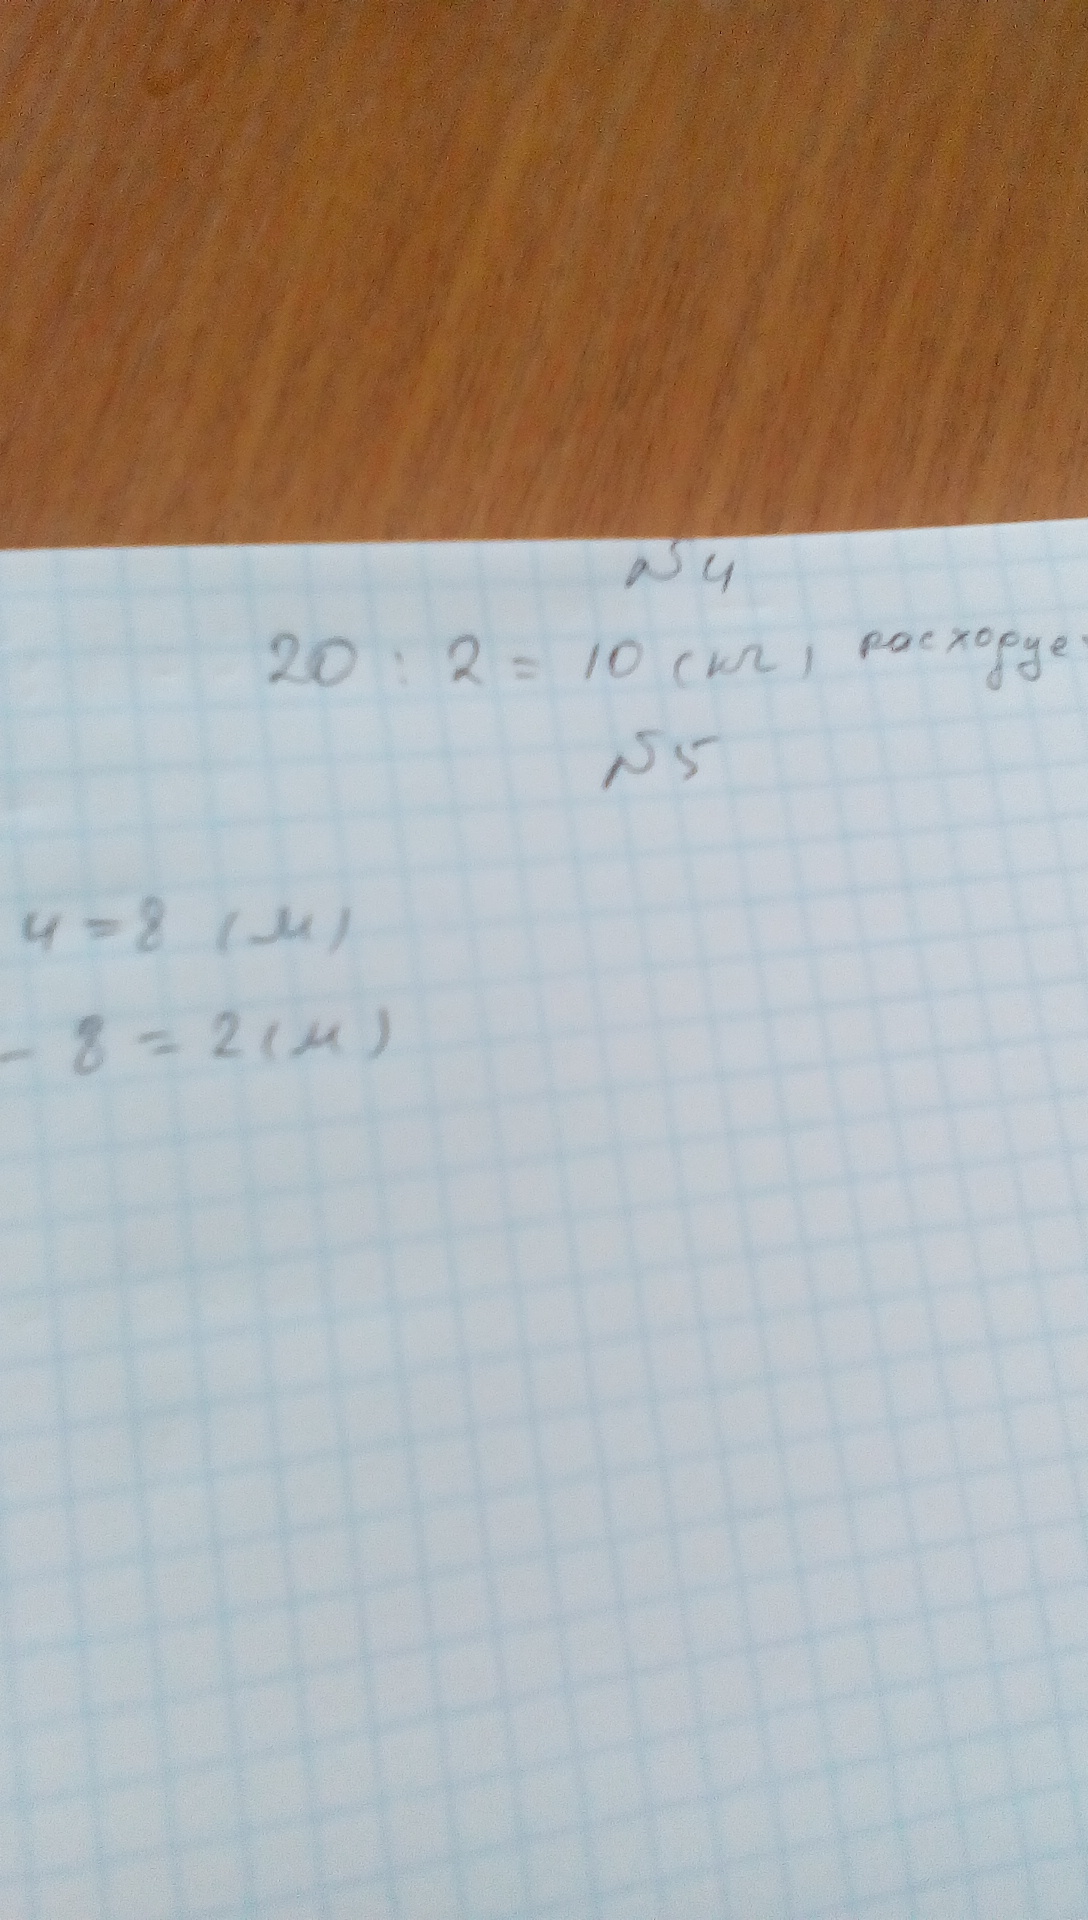 №4
20 : 2 = 10 (кг) расходуе
№5
4 = 8 (м)
- 8 = 2 (м)